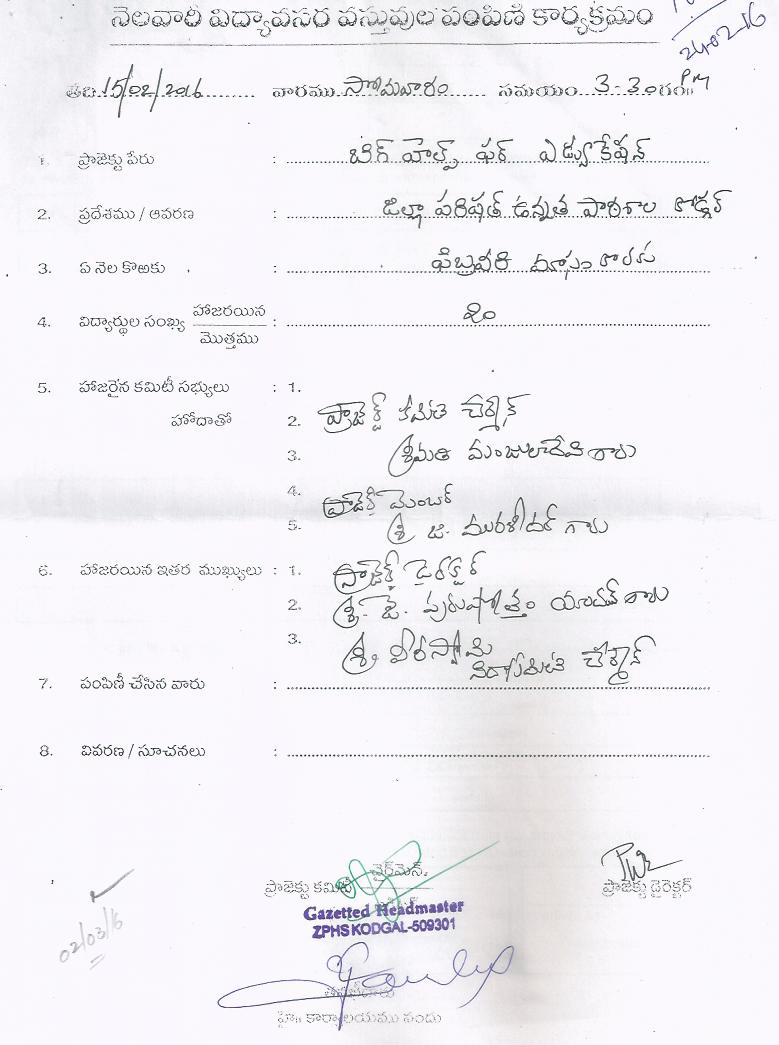 నెలవారి విద్యావసర వస్తువుల పంపిణీ కార్యక్రమం
24-02-16
తేది 15/02/2016 వారము సోమవారం సమయం 3-30గం॥ PM
1. ప్రాజెక్టు పేరు : బిగ్ హెల్ప్ ఫర్ ఎడ్యుకేషన్
2. ప్రదేశము / ఆవరణ : జిల్లా పరిషత్ ఉన్నత పాఠశాల కోడ్గల్
3. ఏ నెల కొఱకు : ఫిబ్రవరి మాసం కొరకు
4. విద్యార్థుల సంఖ్య హాజరయిన / మొత్తము :
5. హాజరైన కమిటీ సభ్యులు : 1.
హోదాతో 2. ప్రాజెక్ట్ కమిటి చైర్మెన్
3. శ్రీమతి మంజులాదేవి గారు
4. ప్రాజెక్ట్ మెంబర్
5. శ్రీ జి. మురళీధర్ గారు
6. హాజరయిన ఇతర ముఖ్యులు : 1. ప్రాజెక్ట్ డైరెక్టర్
2. శ్రీ. జె. పురుషోత్తం యాదవ్ గారు
3. శ్రీ వీరస్వామి
చైర్మెన్
7. పంపిణీ చేసిన వారు :
8. వివరణ / సూచనలు :
చైర్‌మెన్,
ప్రాజెక్టు కమిటి ప్రాజెక్టు డైరెక్టర్
Gazetted Headmaster
ZPHS KODGAL-509301
02/03/16
హై॥ కార్యాలయము నందు